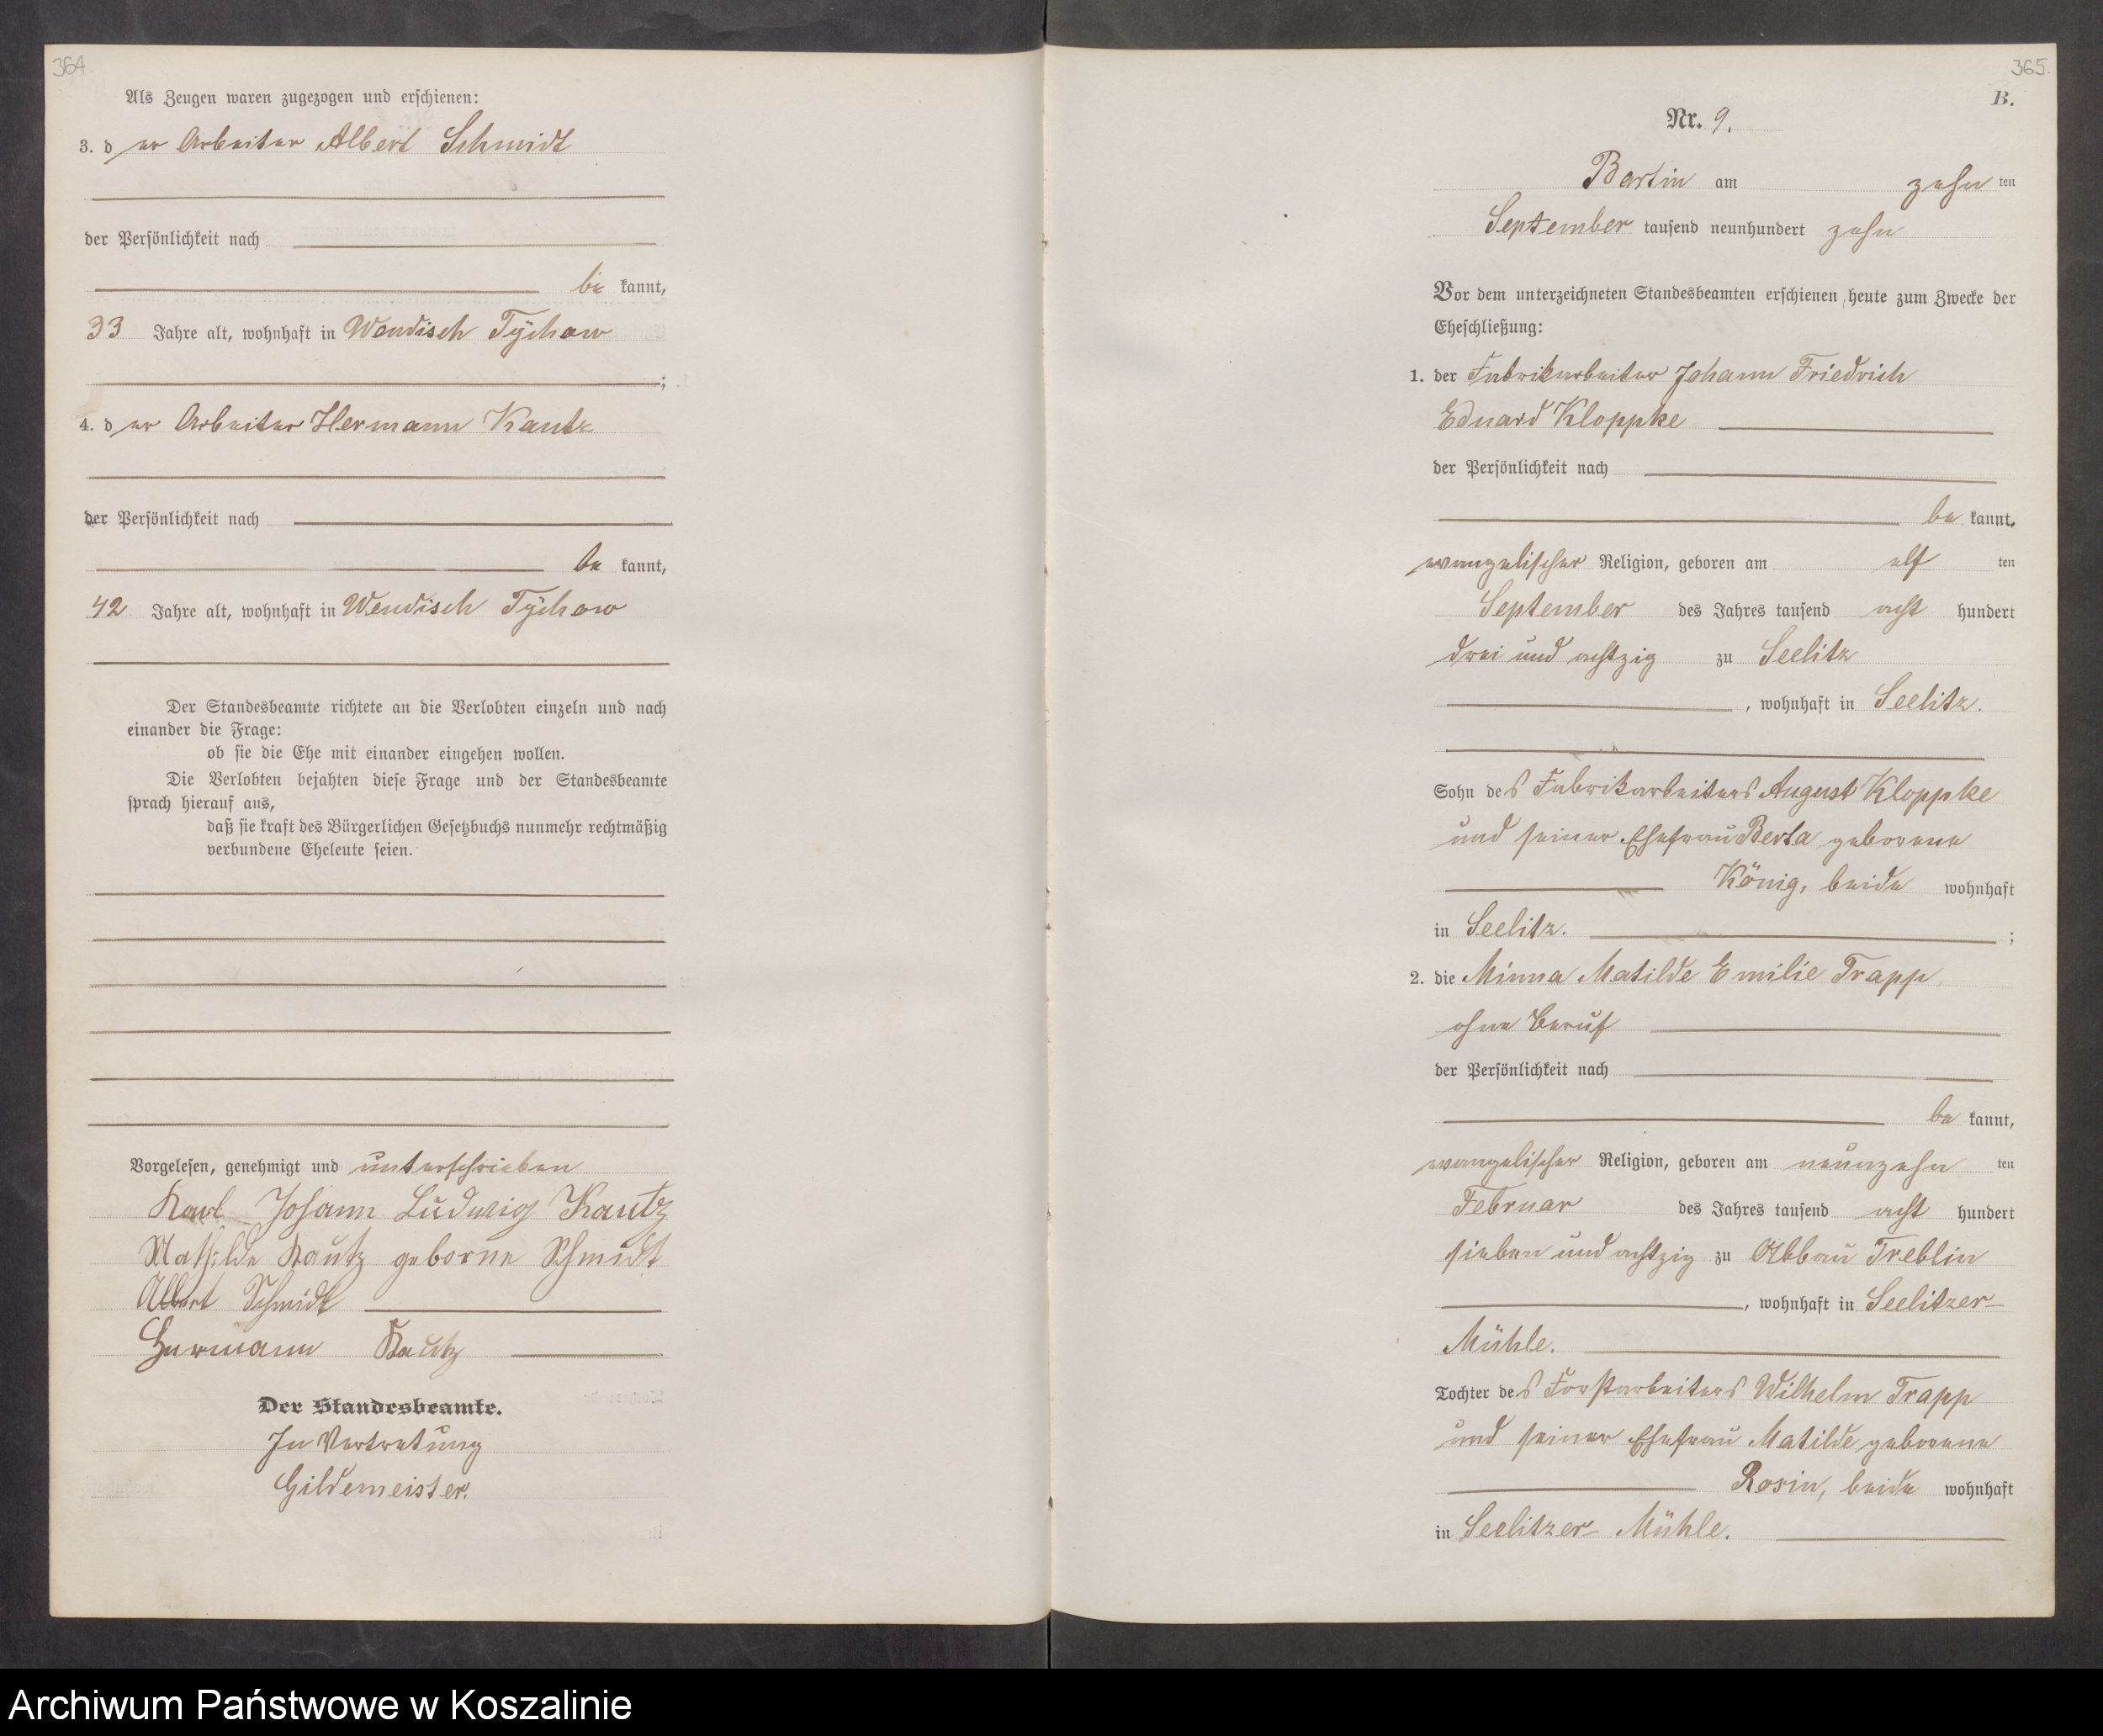 364.
Als Zeugen waren zugezogen und erschienen:
3. der Arbeiter Albert Schmidt
der Persönlichkeit nach
be kannt,
33 Jahre alt, wohnhaft in Wendisch Tÿchow
;
4. der Arbeiter Hermann Kautz
der Persönlichkeit nach
be kannt,
42 Jahre alt, wohnhaft in Wendisch Tÿchow
Der Standesbeamte richtete an die Verlobten einzeln und nach
einander die Frage:
ob sie die Ehe mit einander eingehen wollen.
Die Verlobten bejahten diese Frage und der Standesbeamte
sprach hierauf aus,
daß sie kraft des Bürgerlichen Gesetzbuchs nunmehr rechtmäßig
verbundene Eheleute seien.
Vorgelesen, genehmigt und unterschrieben
Karl Johann Ludwig Kautz
Mathilde Kautz geborne Schmidt
Albert Schmidt
Hermann Kautz
Der Standesbeamte.
In Vertretung
Gildemeister.
365.
B.
Nr. 9.
Bartin am zehn ten
September tausend neunhundert zehn
Vor dem unterzeichneten Standesbeamten erschienen heute zum Zwecke der
Eheschließung:
1. der Fabrikarbeiter Johann Friedrich
Eduard Kloppke
der Persönlichkeit nach
be kannt,
evangelischer Religion, geboren am elf ten
September des Jahres tausend acht hundert
drei und achtzig zu Seelitz
, wohnhaft in Seelitz.
Sohn des Fabrikarbeiters August Kloppke
und seiner Ehefrau Berta geborene
König, beide wohnhaft
in Seelitz. ;
2. die Minna Matilde Emilie Trapp,
ohne Beruf
der Persönlichkeit nach
be kannt,
evangelischer Religion, geboren am neunzehn ten
Februar des Jahres tausend acht hundert
sieben und achtzig zu Abbau Treblin
, wohnhaft in Seelitzer-
Mühle.
Tochter des Forstarbeiters Wilhelm Trapp
und seiner Ehefrau Matilde geborene
Rosin, beide wohnhaft
in Seelitzer- Mühle.
Archiwum Państwowe w Koszalinie